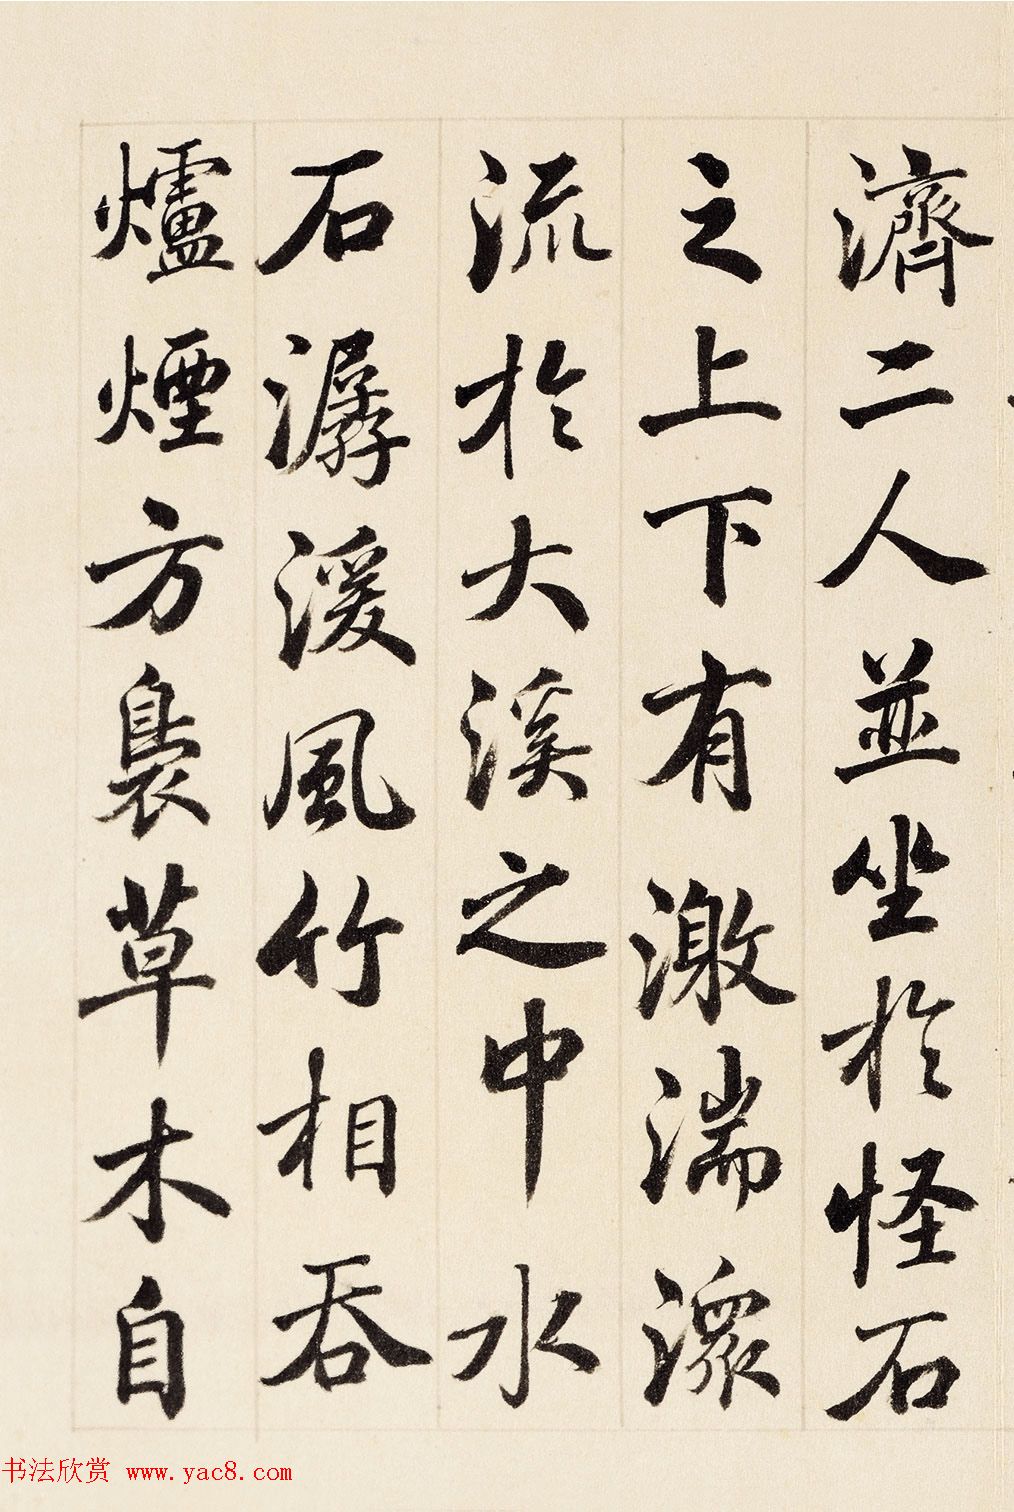 濟二人並坐於怪石
之上下有激湍潨
流於大溪之中水
石潺湲風竹相吞
爐煙方裊草木自
书法欣赏 www.yac8.com